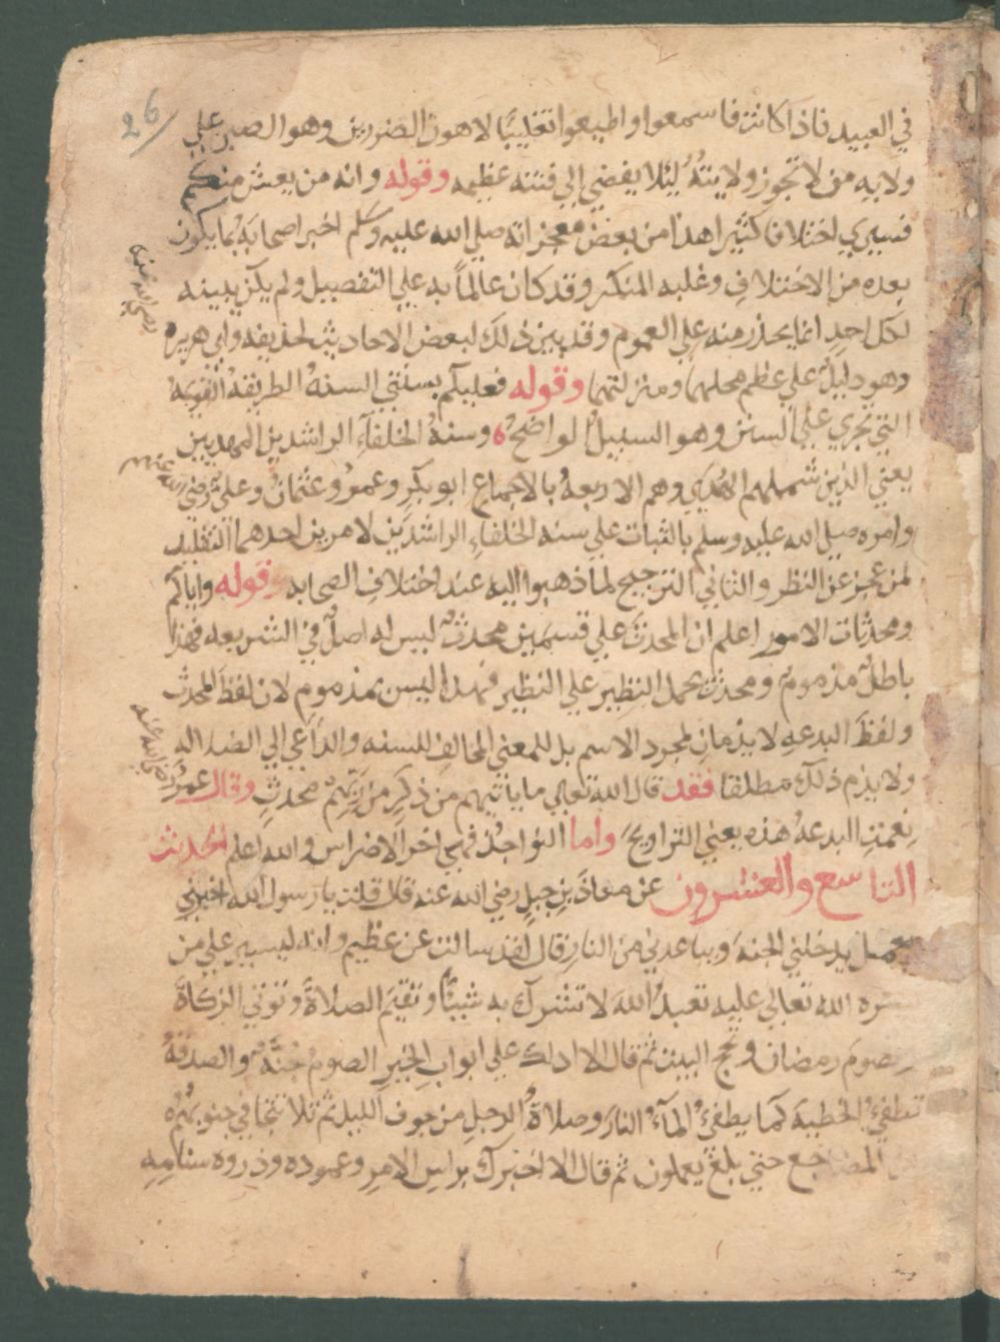 26
في العبيد فاذا كانت فاسمعوا واطيعوا تغليبًا لاهون الضررين وهو الصبر علي
ولايه من لا تجوز ولايتهُ ليُلا يفضي الي فتنه عظيمه وقوله وانه من يعش منكم
فسيري اختلافا كثيرا هذا من بعض معجزاته صلي الله عليه وسلم اخبر اصحابَهُ بما يكون
بعده من الاختلافِ وغلبه المنكر وقد كان عالماً به علي التفصيل ولم يكن يبينه
لكل احدٍ انما يحذر منه علي العموم وقد بين ذلك لبعض الاحاد يث لحذيفه وابي هريره
رضي الله عنهما
وهو دليلٌ علي عظم محلهما ومنزلتهما وقوله فعليكم بسنتي السنهُ الطريقهُ القويمهُ
التي تجري علي السنن وهو السبيلُ الواضحُ وسنةُ الخلفاءِ الراشدين المهديين
يعني الذين شملهم الهُدَي وهم الاربعهُ بالاجماع ابو بكرٍ وعمرُ وعثمانُ وعليٌّ رضي
الله عنهم
وامره صلي الله عليه وسلم بالثبات علي سنه الخلفاءِ الراشدين لامرين احدهما التقليد
لمن عجز عن النظر والثاني الترجيح لما ذهبوا اليه عند اختلافِ الصحابه وقوله واياكم
ومحدثات الامور اعلم ان المحدثَ علي قسمين محدثٌ ليس له اصلٌ في الشريعه فهذا
باطلٌ مذمومٌ ومحدثٌ بحمل النظيرِ علي النظير فهذا ليس بمذمومٍ لان لفظَ المحدث
ولفظَ البدعهِ لا يذمانِ لمجرد الاسم بل للمعني المخالفِ للسنه والداعي الي الضلاله
ولا يذم ذلك مطلقا فقد قال الله تعالي ما ياتيهم من ذكرٍ من ربّهِم محدثٍ وقال عمرُ
رضي الله عنه
نِعمَتِ البدعهُ هذه يعني التراويحَ واما النواجذ فهي اخر الاضراس والله اعلم الحديث
التاسع والعشرون عن معاذ بن جبلٍ رضي الله عنه قال قلت يا رسول الله اخبرني
بعمل يدخلني الجنهَ ويباعدني من النار قال لقد سالت عن عظيمٍ وانه ليسير علي من
يسره الله تعالي عليه تعبدُ اللهَ لا تشرك به شيئًا وتقيم الصلاةَ وتوتي الزكاةَ
وتصوم رمضان وتحج البيت ثم قال الا ادلك علي ابواب الخيرِ الصوم جُنَّةٌ والصدقهُ
تطفئُ الخطيهَ كما يطفئُ المآءُ النارَ وصلاةُ الرجلِ من جوف الليل ثم تلا تتجافي جنوبهُم
عن المضاجع حتي بلغ يعملون ثم قال الا اخبرك براس الامرِ وعموده وذروه سنامِهِ